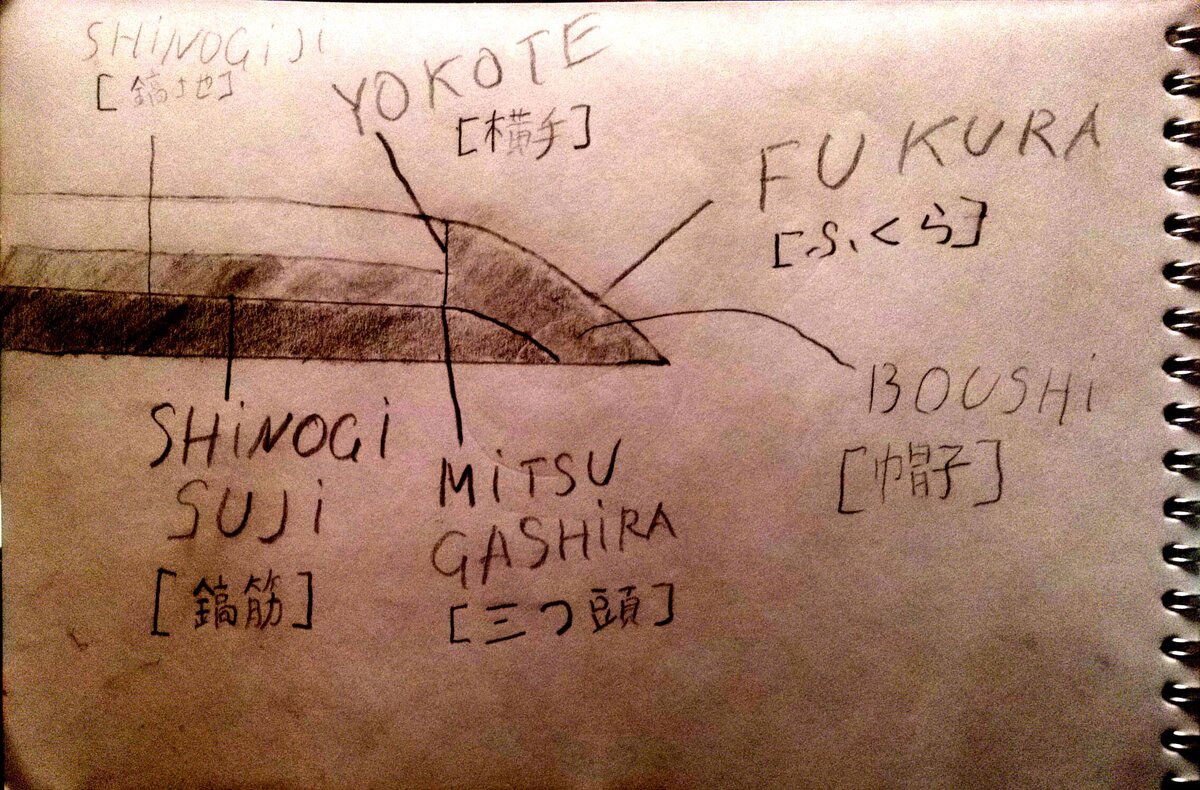 SHiNOGiJi
[鎬地]
YOKOTE
[横手]
FUKURA
[ふくら]
BOUSHi
[帽子]
SHiNOGi
SUJi
[鎬筋]
MiTSU
GASHiRA
[三つ頭]